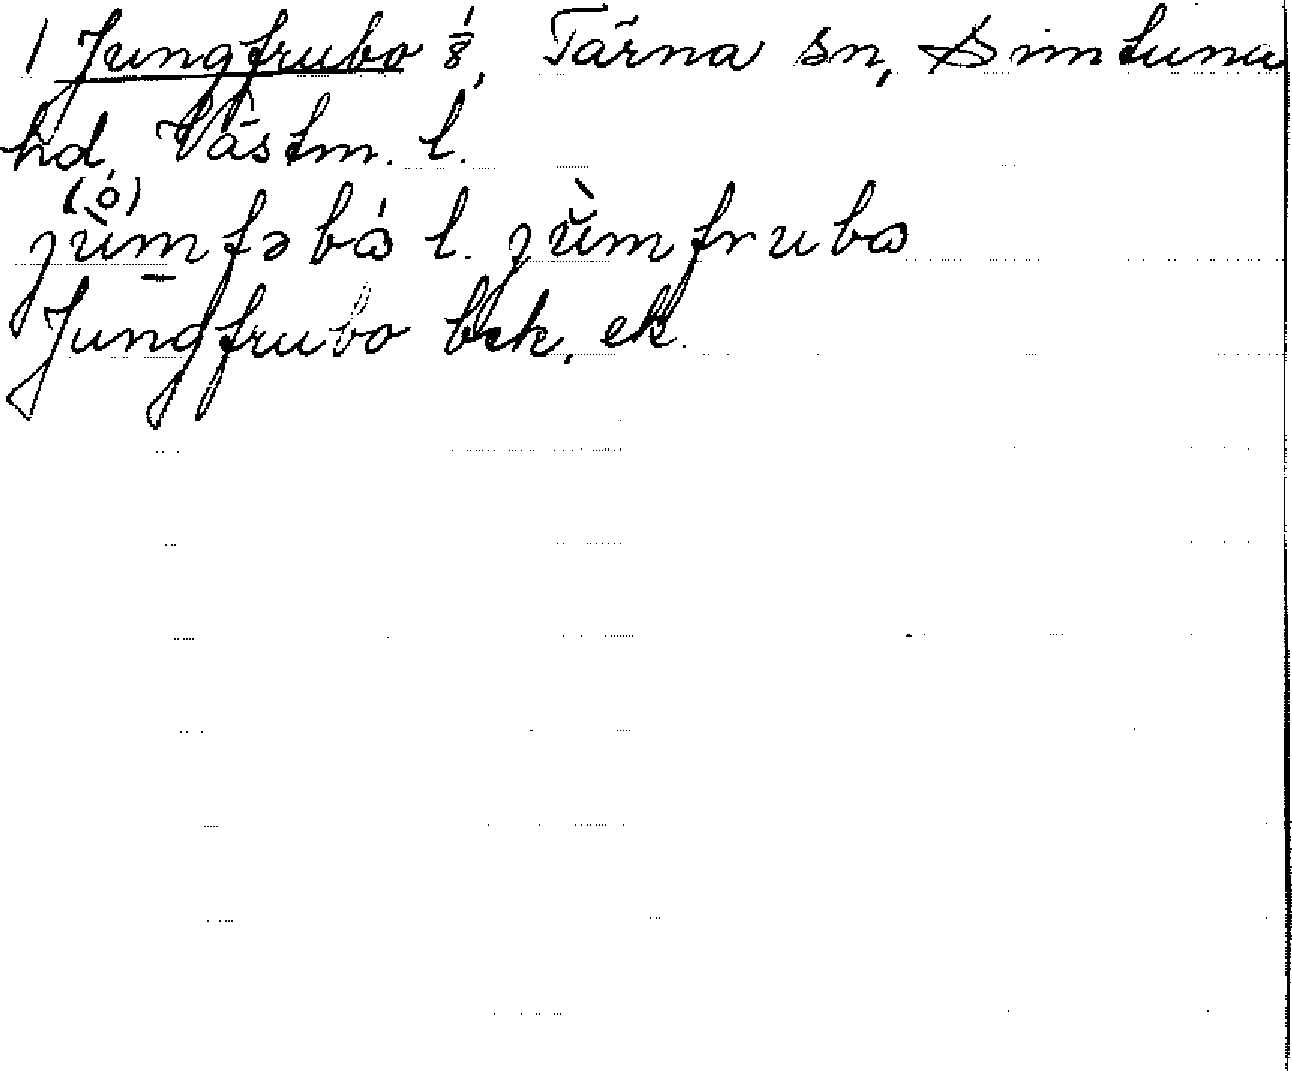 1 Jungfrubo 1/8, Tärna sn, Simtuna
hd, Västm. l.
(ò)
jùmfəbó l. jùmfrubo
Jungfrubo bek, ek.